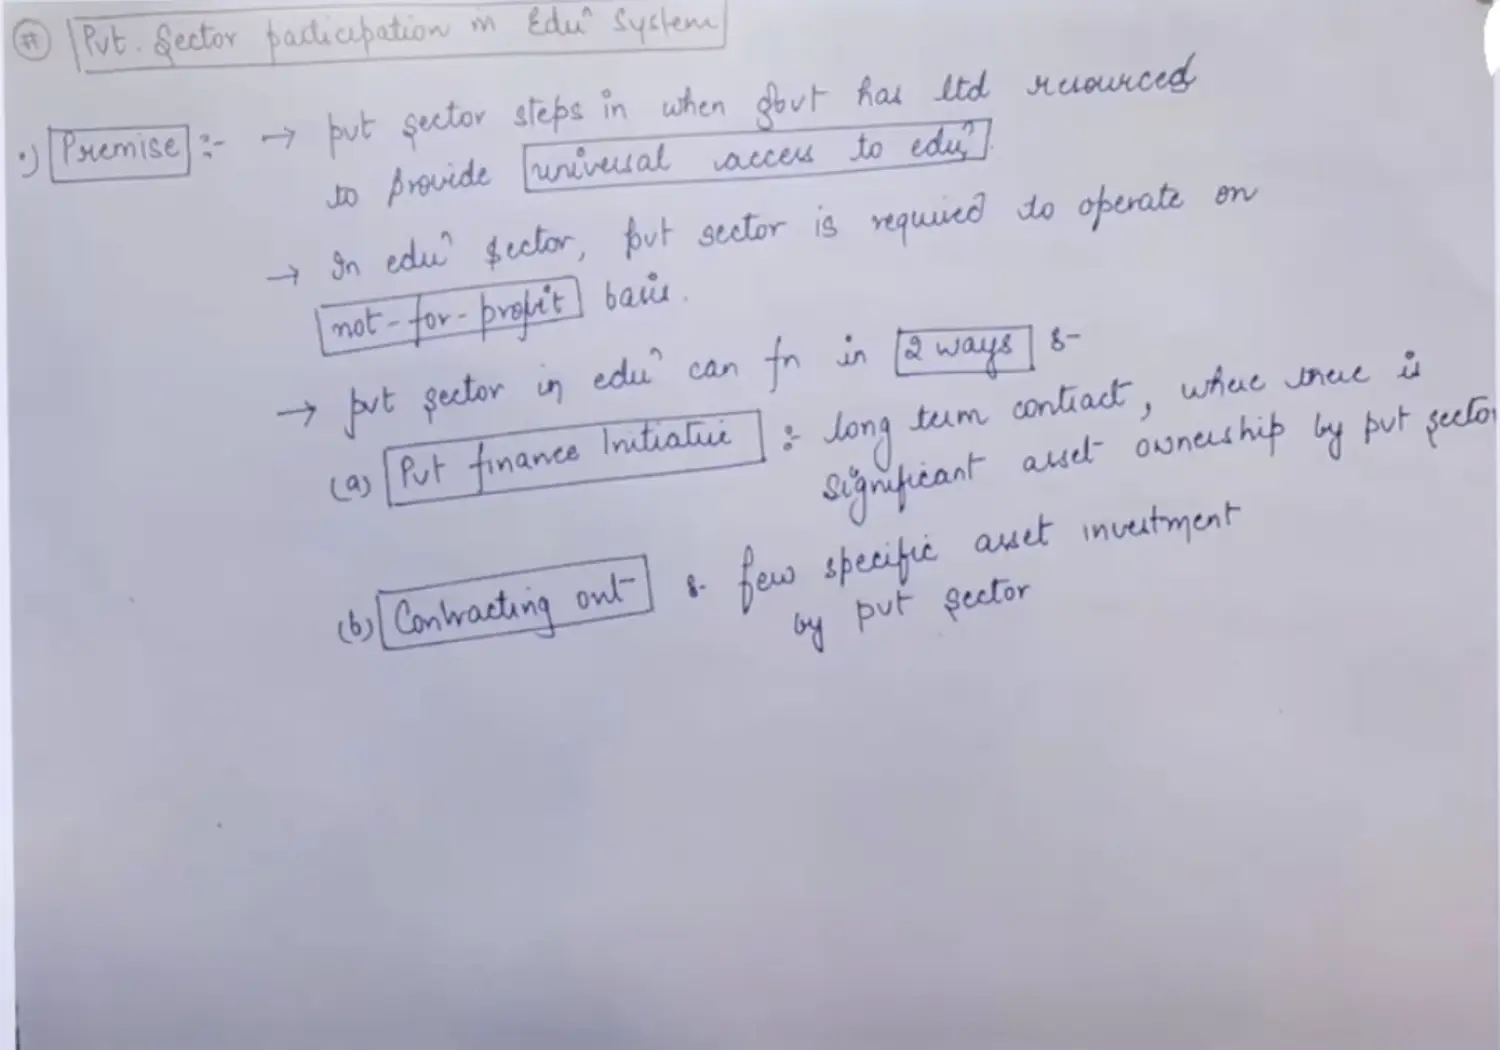 # Pvt. Sector participation in Eduⁿ System
•) Premise :- → pvt sector steps in when govt has ltd resourced
to provide universal access to eduⁿ.
→ In eduⁿ sector, pvt sector is required to operate on
not-for-profit basis.
→ pvt sector in eduⁿ can fn in 2 ways :-
(a) Pvt finance Initiative :- long term contract, where there is
significant asset ownership by pvt sector
(b) Contracting out :- few specific asset investment
by pvt sector